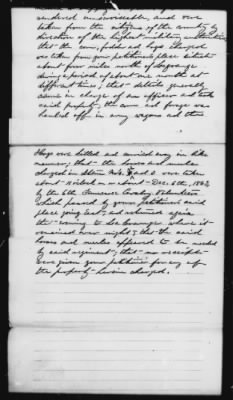 rendered unserviceable, and were
taken from the citizens of the country by
direction of the highest military authorities;
that the corn, fodder and hogs charged
was taken from your petitioner's place situate
about four miles north of Lagrange
during a period of about one month at
different times; that details generally
came in charge of an officer and took
said property, the corn and forage was
hauled off in army wagons and the
Hogs were killed and carried away in like
manner; that the horses and mules
charged in Items No's. and were taken
about o'clock on or about Dec. 6th, 1862,
by the 6th Tennessee Cavalry Volunteers
which passed by your petitioner's said
place going east, and returned again
the evening to Lagrange where it
remained over night; that the said
horses and mules appeared to be needed
by said regiment; that no receipts
were given your petitioner for any of
the property herein charged.